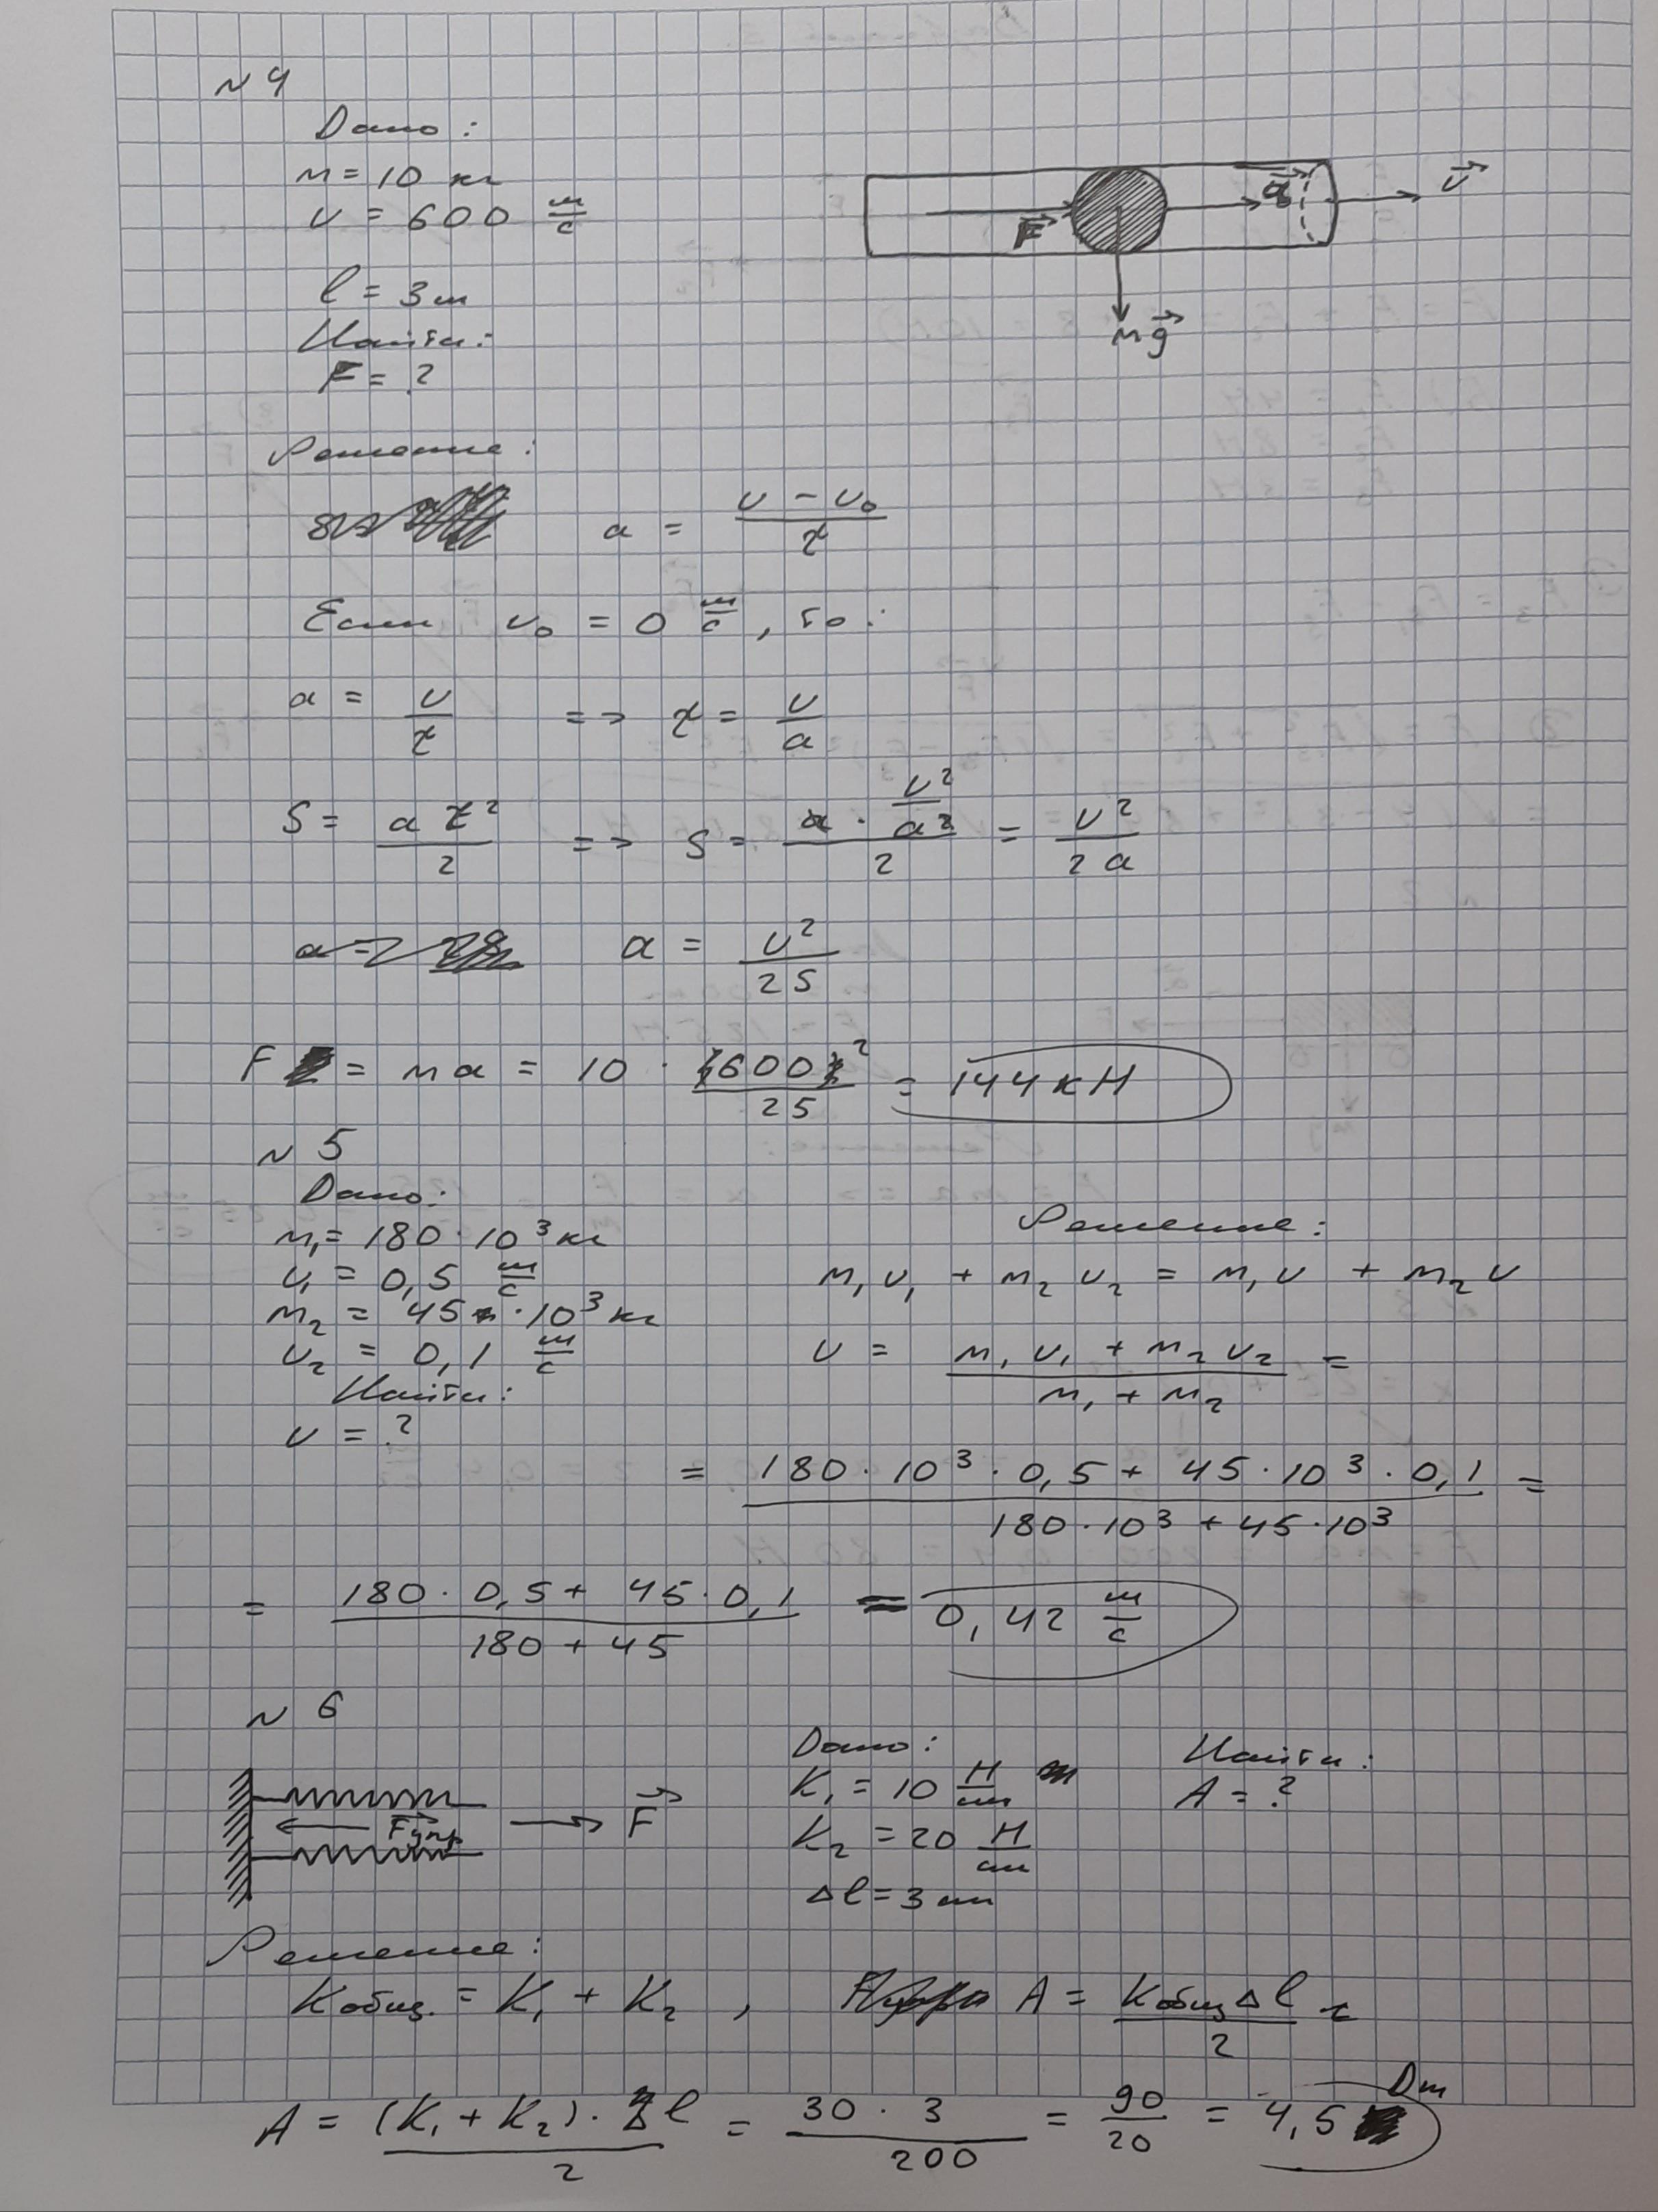 N 4
Дано:
m = 10 кг
v = 600 м/с
l = 3 м
Найти:
F = ?
F⃗ a⃗ v⃗
mg⃗
Решение:
a = (v - v₀)/t
Если v₀ = 0 м/с, то:
a = v/t => t = v/a
S = at²/2 => S = (a · v²/a²)/2 = v²/2a
a = v²/2S
F = ma = 10 · 600²/2S = 144 кН
N 5
Дано:
m₁ = 180 · 10³ кг
v₁ = 0,5 м/с
m₂ = 45 · 10³ кг
v₂ = 0,1 м/с
Найти:
v = ?
Решение:
m₁v₁ + m₂v₂ = m₁v + m₂v
v = (m₁v₁ + m₂v₂)/(m₁ + m₂) =
= (180 · 10³ · 0,5 + 45 · 10³ · 0,1)/(180 · 10³ + 45 · 10³) =
= (180 · 0,5 + 45 · 0,1)/(180 + 45) = 0,42 м/с
N 6
F⃗упр F⃗
Дано:
K₁ = 10 Н/см
K₂ = 20 Н/см
Δl = 3 см
Найти:
A = ?
Решение:
Kобщ. = K₁ + K₂, A = KобщΔl/2 =
A = (K₁ + K₂) · Δl/2 = 30 · 3/200 = 90/20 = 4,5 Дж